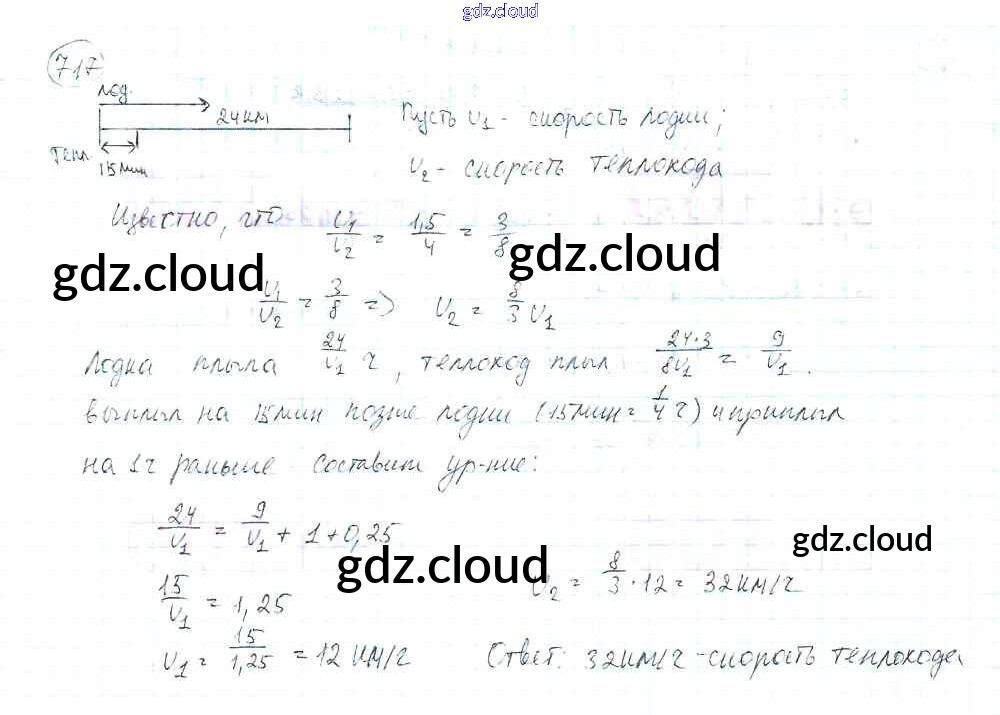 gdz.cloud
717
лод.
24 км
Пусть v₁ - скорость лодки;
тепл
15 мин
v₂ - скорость теплохода
Известно, что v₁/v₂ = 1,5/4 = 3/8
gdz.cloud gdz.cloud
v₁/v₂ = 3/8 => v₂ = 8/3 v₁
Лодка плыла 24/v₁ ч, теплоход плыл 24·3/8v₁ = 9/v₁.
выплыл на 15 мин позже лодки (15 мин = 1/4 ч) и приплыл
на 1 ч раньше Составим ур-ние:
24/v₁ = 9/v₁ + 1 + 0,25
gdz.cloud
gdz.cloud
15/v₁ = 1,25
v₂ = 8/3 · 12 = 32 км/ч
v₁ = 15/1,25 = 12 км/ч
Ответ: 32 км/ч - скорость теплохода